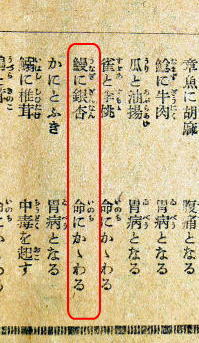 章魚に胡麻　腹痛となる
鯰に牛肉　胃病となる
瓜と油揚　胃病となる
雀と李桃　命にかゝわる
鰻に銀杏　命にかゝわる
かにとふき　胃病となる
鰯に椎茸　中毒を起す